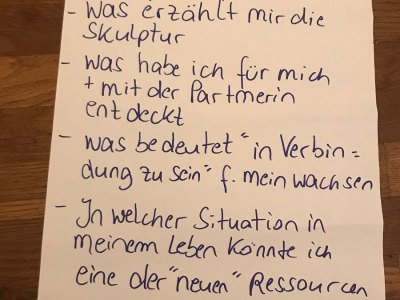 - was erzählt mir die
Skulptur
- was habe ich für mich
+ mit der Partnerin
entdeckt
- was bedeutet "in Verbin=
dung zu sein" f. mein wachsen
- In welcher Situation in
meinem Leben könnte ich
eine der "neuen" Ressourcen